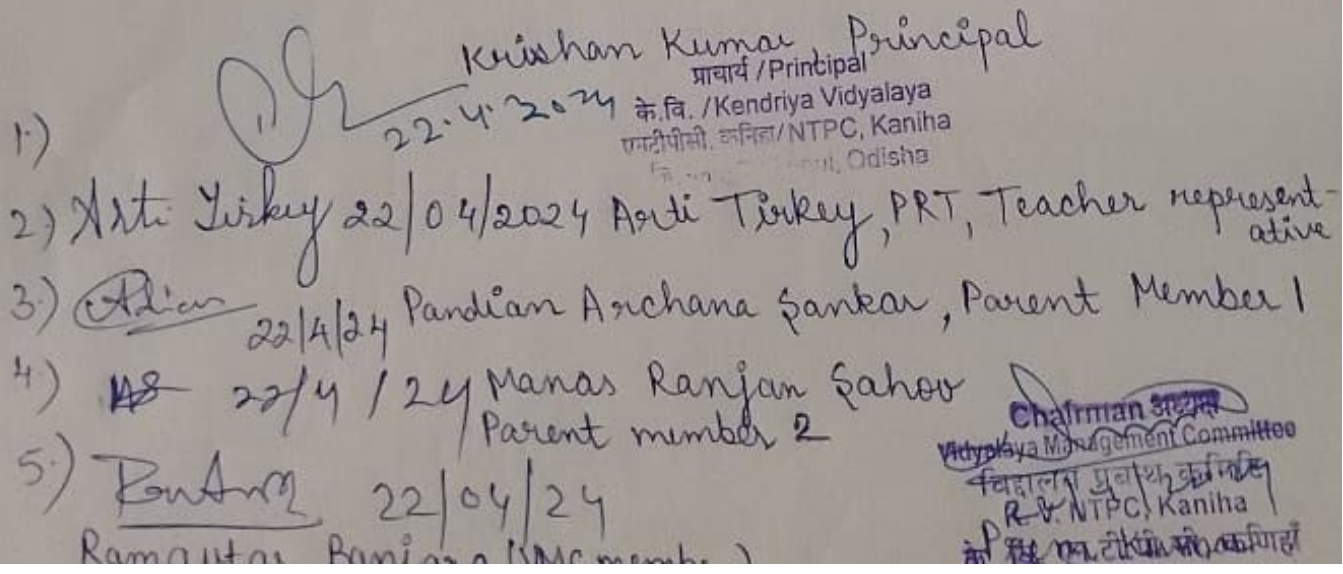 Krishan Kumar, Principal
प्राचार्य / Principal
1.) 22.4.2024 के.वि. / Kendriya Vidyalaya
एनटीपीसी, कनिहा/NTPC, Kaniha
Odisha
2) Arti Tirkey 22/04/2024 Arti Tirkey, PRT, Teacher represent-
ative
3.) 22/4/24 Pandian Archana Sankar, Parent Member 1
4) 22/4/24 Manas Ranjan Sahoo
Parent member 2
5.) 22/04/24
Ramautar Banjara (VMC member)
Chairman अध्यक्ष
Vidyalaya Management Committee
विद्यालय प्रबंधन समिति
NTPC, Kaniha